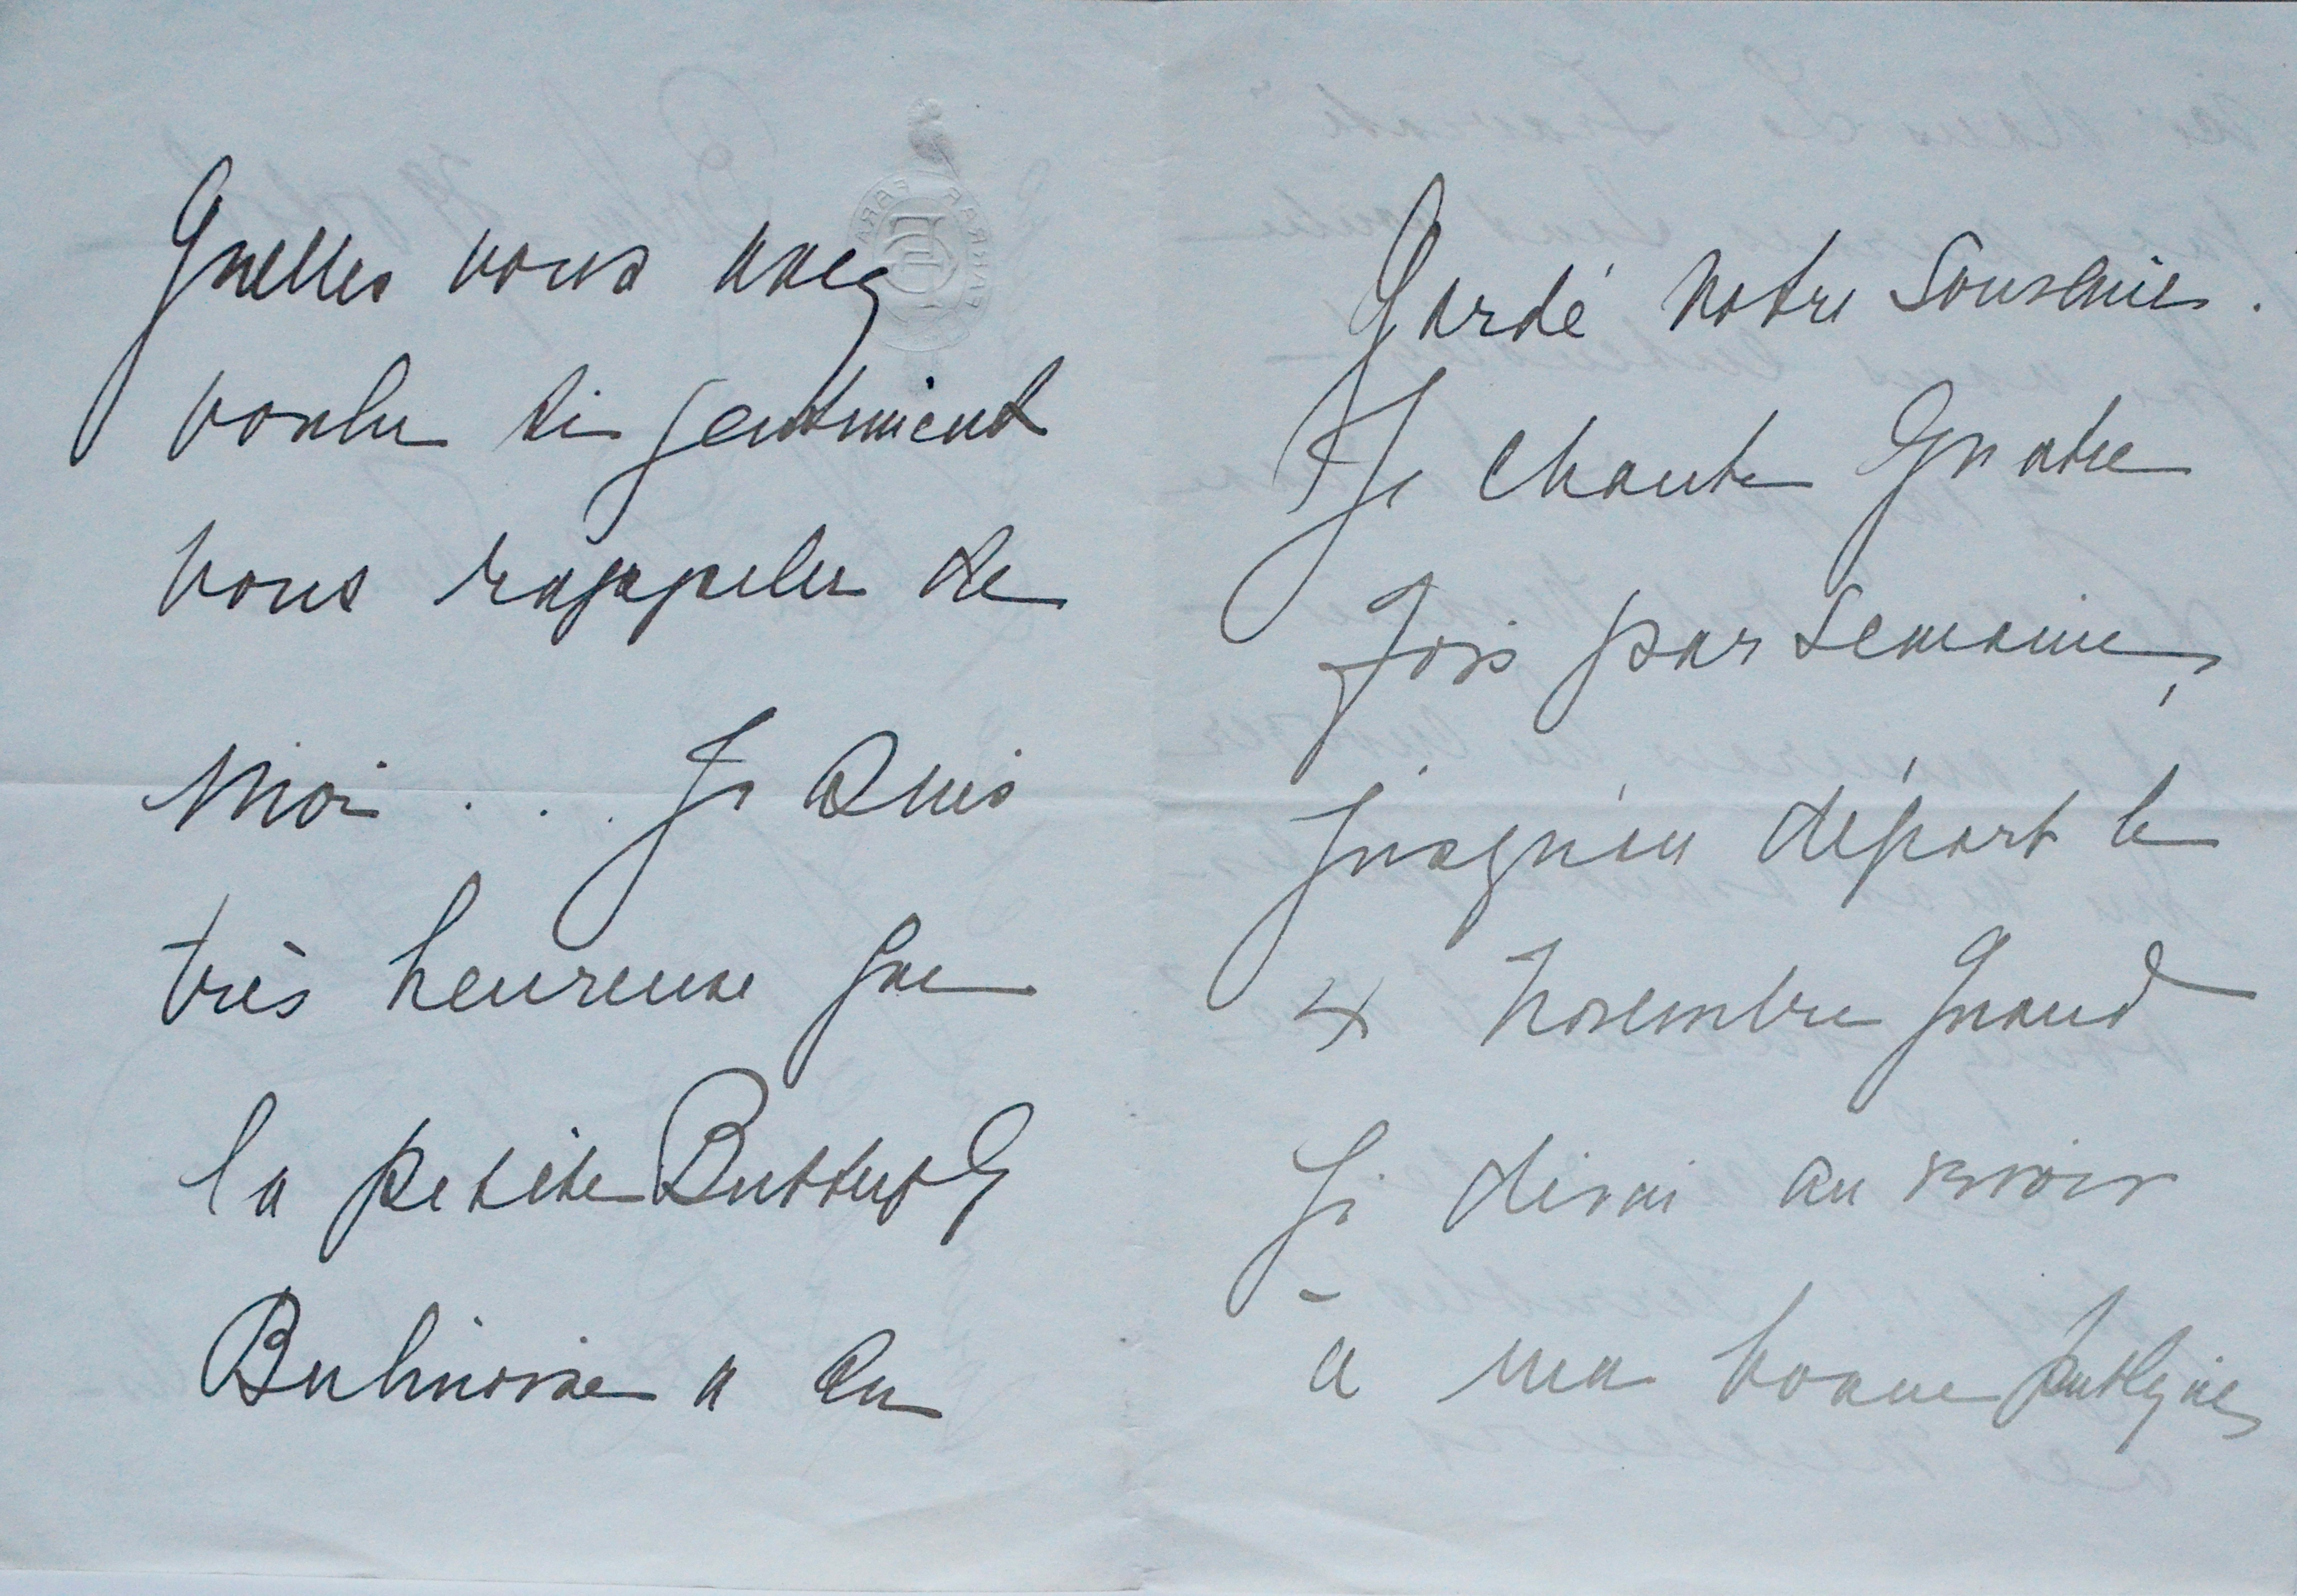 Quelles vous avez
voulu si gentiment
vous rappeler de
moi . . . Je suis
très heureuse que
la petite Butterfly
Berlinoise a en
Gardé votre souvenir.
Je chante quatre
fois par semaine,
jusqu'au départ le
4 Novembre quand
je dirai au revoir
à ma bonne
FARRAR